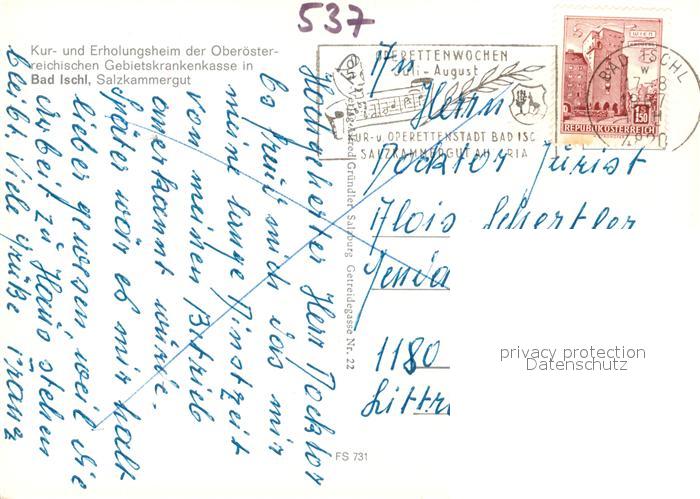 537
Kur- und Erholungsheim der Oberöster-
reichischen Gebietskrankenkasse in
Bad Ischl, Salzkammergut
OPERETTENWOCHEN
Juli - August
KUR- u. OPERETTENSTADT BAD ISC
SALZKAMMERGUT AUSTRIA
WIEN
1.50
REPUBLIK ÖSTERREICH
BAD ISCHL
4820
An
Herrn
Docktor Jurist
Alois Schertler
1180
Hochgeherter Herr Docktor
Es freut mich das mir
meine lange Dinstzeit
von meinen Betrieb
anerkannt wurde.
Später wär es mir halt
lieber gewesen, weil die
Arbeit zu Haus stehen
bleibt. Viele Grüße Franz
Alfred Gründler, Salzburg, Getreidegasse Nr. 22
FS 731
privacy protection
Datenschutz